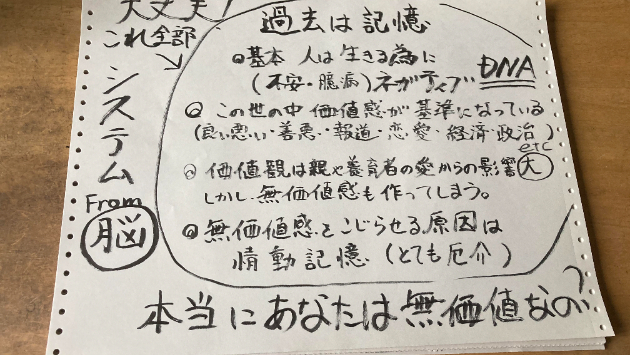 大丈夫!
これ全部
システム
From
脳
過去は記憶
基本 人は生きる為に
(不安・臆病)ネガティブ DNA
この世の中 価値感が基準になっている
(良い悪い・善悪・報道・恋愛・経済・政治)
etc
価値観は親や養育者の愛からの影響 大
しかし、無価値感も作ってしまう。
無価値感をこじらせる原因は
情動記憶 (とても厄介)
本当にあなたは無価値なの?